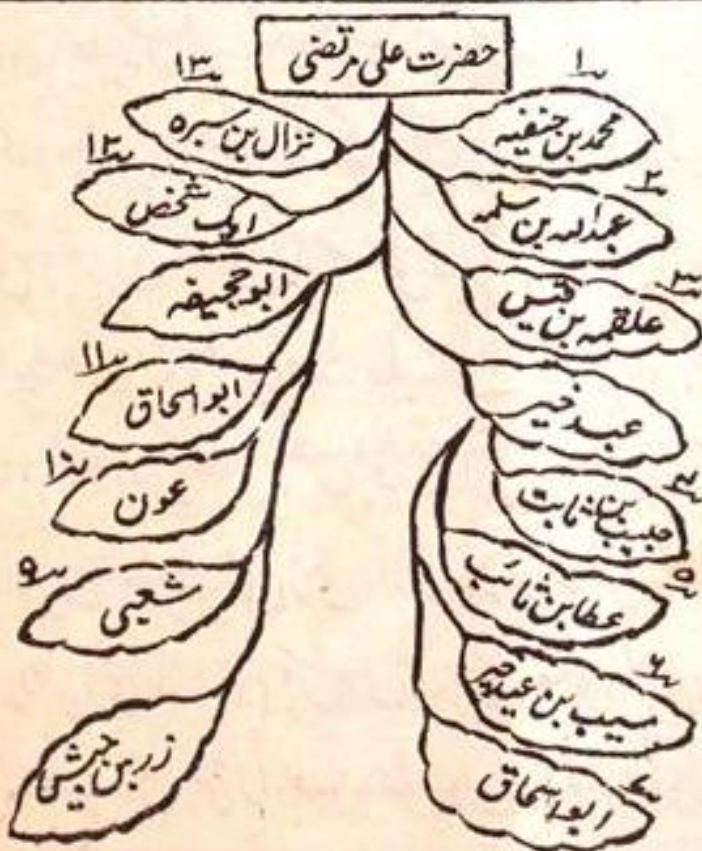 حضرت علی مرتضی
۱
محمد بن حنفیہ
۲
عبداللہ بن سلمہ
۳
علقمہ بن قیس
عبد خیر
۴
حبیب بن ثابت
۵
عطا بن ثائب
۶
مسیب بن عبد خیر
۷
ابو اسحاق
۱۳
نزال بن سبرہ
۱۲
ایک شخص
ابو جحیفہ
۱۱
ابو اسحاق
۱۰
عون
۹
شعبی
زر بن حبیش